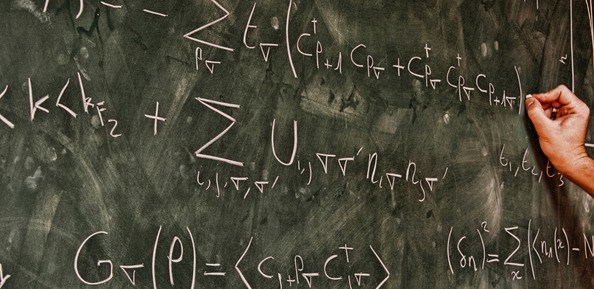 - - Σ_{pσ} t_σ (C†_{p+1} C_{pσ} + C†_{pσ} C†_{pσ} C_{p+1σ})
< k < k_{F_2} + Σ_{i,j,σ,σ'} U_{i,jσσ'} n_{iσ} n_{jσ'} t_1, t_2, t_3
G_σ(p) = ⟨C_{i+pσ} C†_{iσ}⟩ (δn)² = Σ_x (⟨n_1(x)⟩ - N